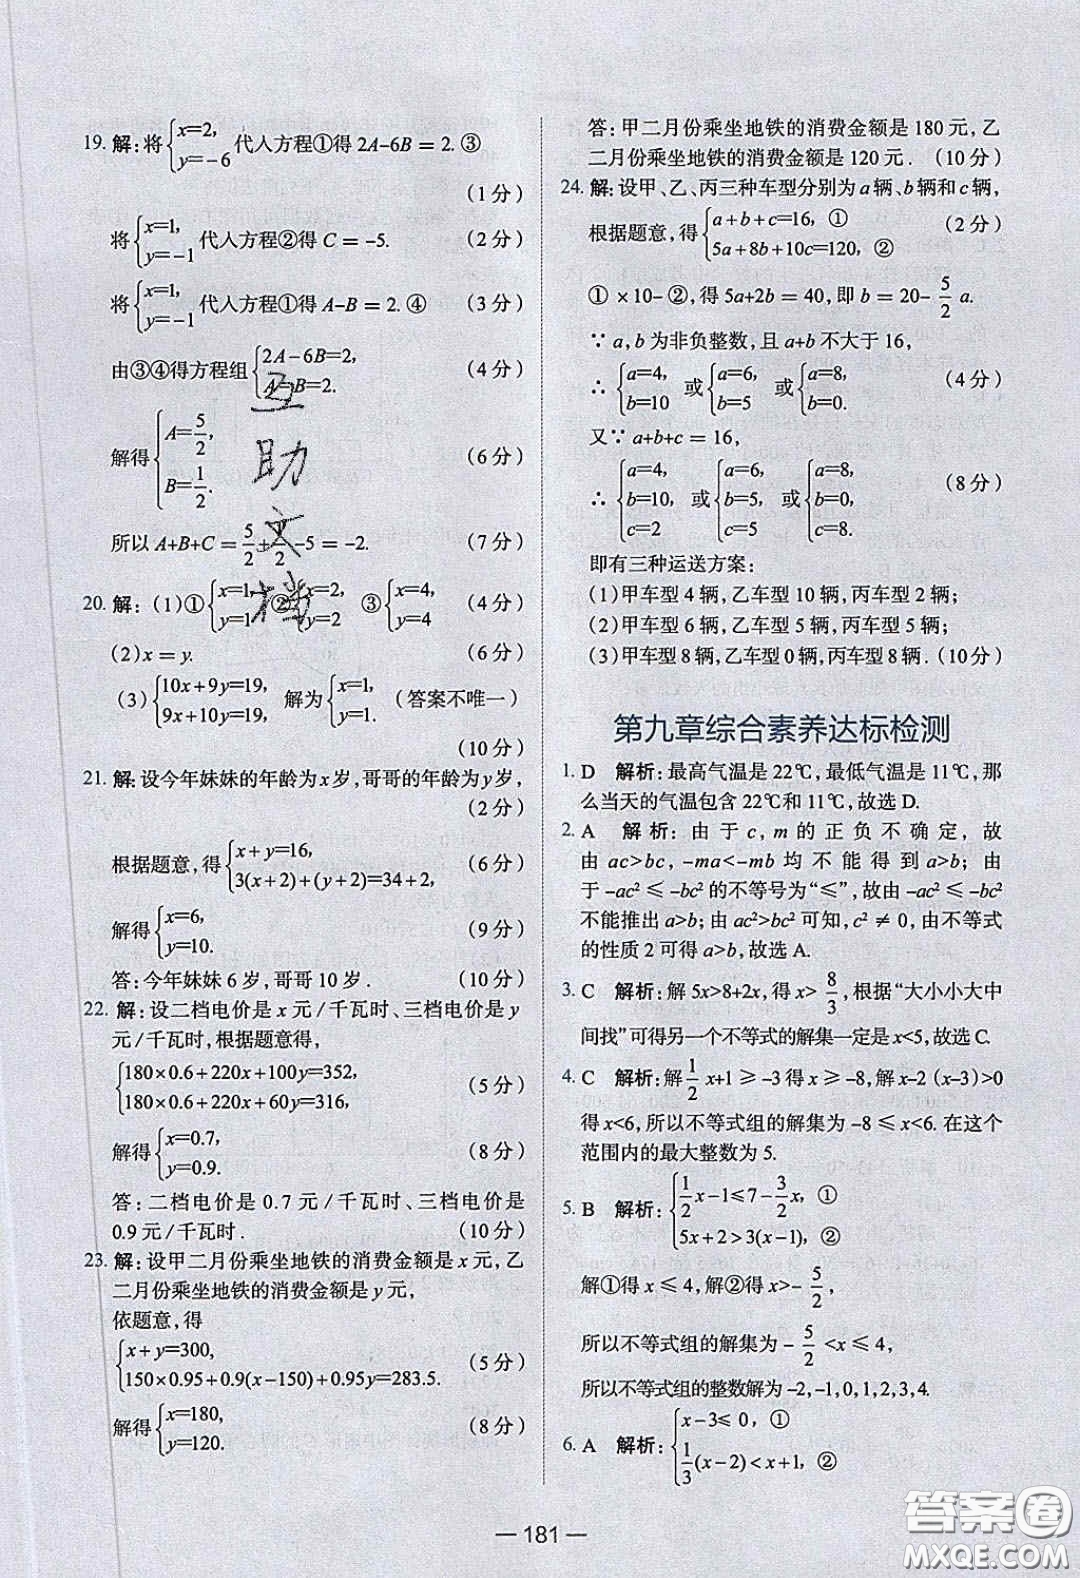 19. 解:将{x=2, y=-6 代人方程①得 2A-6B = 2. ③
(1分)
将{x=1, y=-1 代人方程②得 C = -5. (2分)
将{x=1, y=-1 代人方程①得 A-B = 2. ④ (3分)
由③④得方程组{2A-6B=2, A-B=2. (4分)
解得{A=5/2, B=1/2. (6分)
所以 A+B+C = 5/2+1/2-5 = -2. (7分)
20. 解: (1)①{x=1, y=1 ②{x=2, y=2 ③{x=4, y=4 (4分)
(2)x = y. (6分)
(3){10x+9y=19, 9x+10y=19, 解为{x=1, y=1. (答案不唯一)
(10分)
21. 解:设今年妹妹的年龄为x岁,哥哥的年龄为y岁,
(2分)
根据题意,得{x+y=16, 3(x+2)+(y+2)=34+2, (6分)
解得{x=6, y=10. (9分)
答:今年妹妹 6 岁,哥哥 10 岁. (10分)
22. 解:设二档电价是 x 元/千瓦时、三档电价是 y
元/千瓦时,根据题意得,
{180×0.6+220x+100y=352, 180×0.6+220x+60y=316, (5分)
解得{x=0.7, y=0.9. (8分)
答:二档电价是 0.7 元/千瓦时、三档电价是
0.9元/千瓦时. (10分)
23. 解:设甲二月份乘坐地铁的消费金额是x元,乙
二月份乘坐地铁的消费金额是y元,
依题意,得
{x+y=300, 150×0.95+0.9(x-150)+0.95y=283.5. (5分)
解得{x=180, y=120. (8分)
互
助
文
档
答:甲二月份乘坐地铁的消费金额是180元,乙
二月份乘坐地铁的消费金额是120元. (10分)
24. 解:设甲、乙、丙三种车型分别为a辆、b辆和c辆,
根据题意,得{a+b+c=16, ① 5a+8b+10c=120, ② (2分)
①×10-②,得 5a+2b = 40,即 b = 20- 5/2 a.
∵ a,b为非负整数,且 a+b 不大于16,
∴ {a=4, b=10 或{a=6, b=5 或{a=8, b=0. (4分)
又∵ a+b+c = 16,
∴ {a=4, b=10, c=2 或{a=6, b=5, c=5 或{a=8, b=0, c=8. (8分)
即有三种运送方案:
(1)甲车型 4 辆,乙车型 10 辆,丙车型 2 辆;
(2)甲车型6辆,乙车型5辆,丙车型5辆;
(3)甲车型8辆,乙车型0辆,丙车型8辆. (10分)
第九章综合素养达标检测
1. D 解析:最高气温是22℃,最低气温是11℃,那
么当天的气温包含22℃和11℃,故选D.
2. A 解析:由于c, m的正负不确定,故
由 ac>bc, -ma<-mb 均不能得到 a>b; 由
于-ac² ≤ -bc² 的不等号为“≤”,故由-ac² ≤ -bc²
不能推出 a>b;由 ac²>bc² 可知,c² ≠ 0,由不等式
的性质 2 可得 a>b,故选 A.
3. C 解析:解 5x>8+2x,得 x> 8/3,根据“大小小大中
间找”可得另一个不等式的解集一定是x<5,故选C.
4. C 解析:解1/2x+1 ≥ -3得x ≥ -8,解x-2 (x-3)>0
得x<6,所以不等式组的解集为 -8 ≤ x<6. 在这个
范围内的最大整数为 5.
5. B 解析:{1/2x-1≤7-3/2x, ① 5x+2>3(x-1), ②
解①得 x ≤ 4,解②得x>- 5/2,
所以不等式组的解集为 - 5/2 <x ≤ 4,
所以不等式组的整数解为 -2,-1,0,1,2,3,4.
6. A 解析:{x-3≤0, ① 1/3(x-2)<x+1, ②
— 181 —
答案圈
MXQE.COM